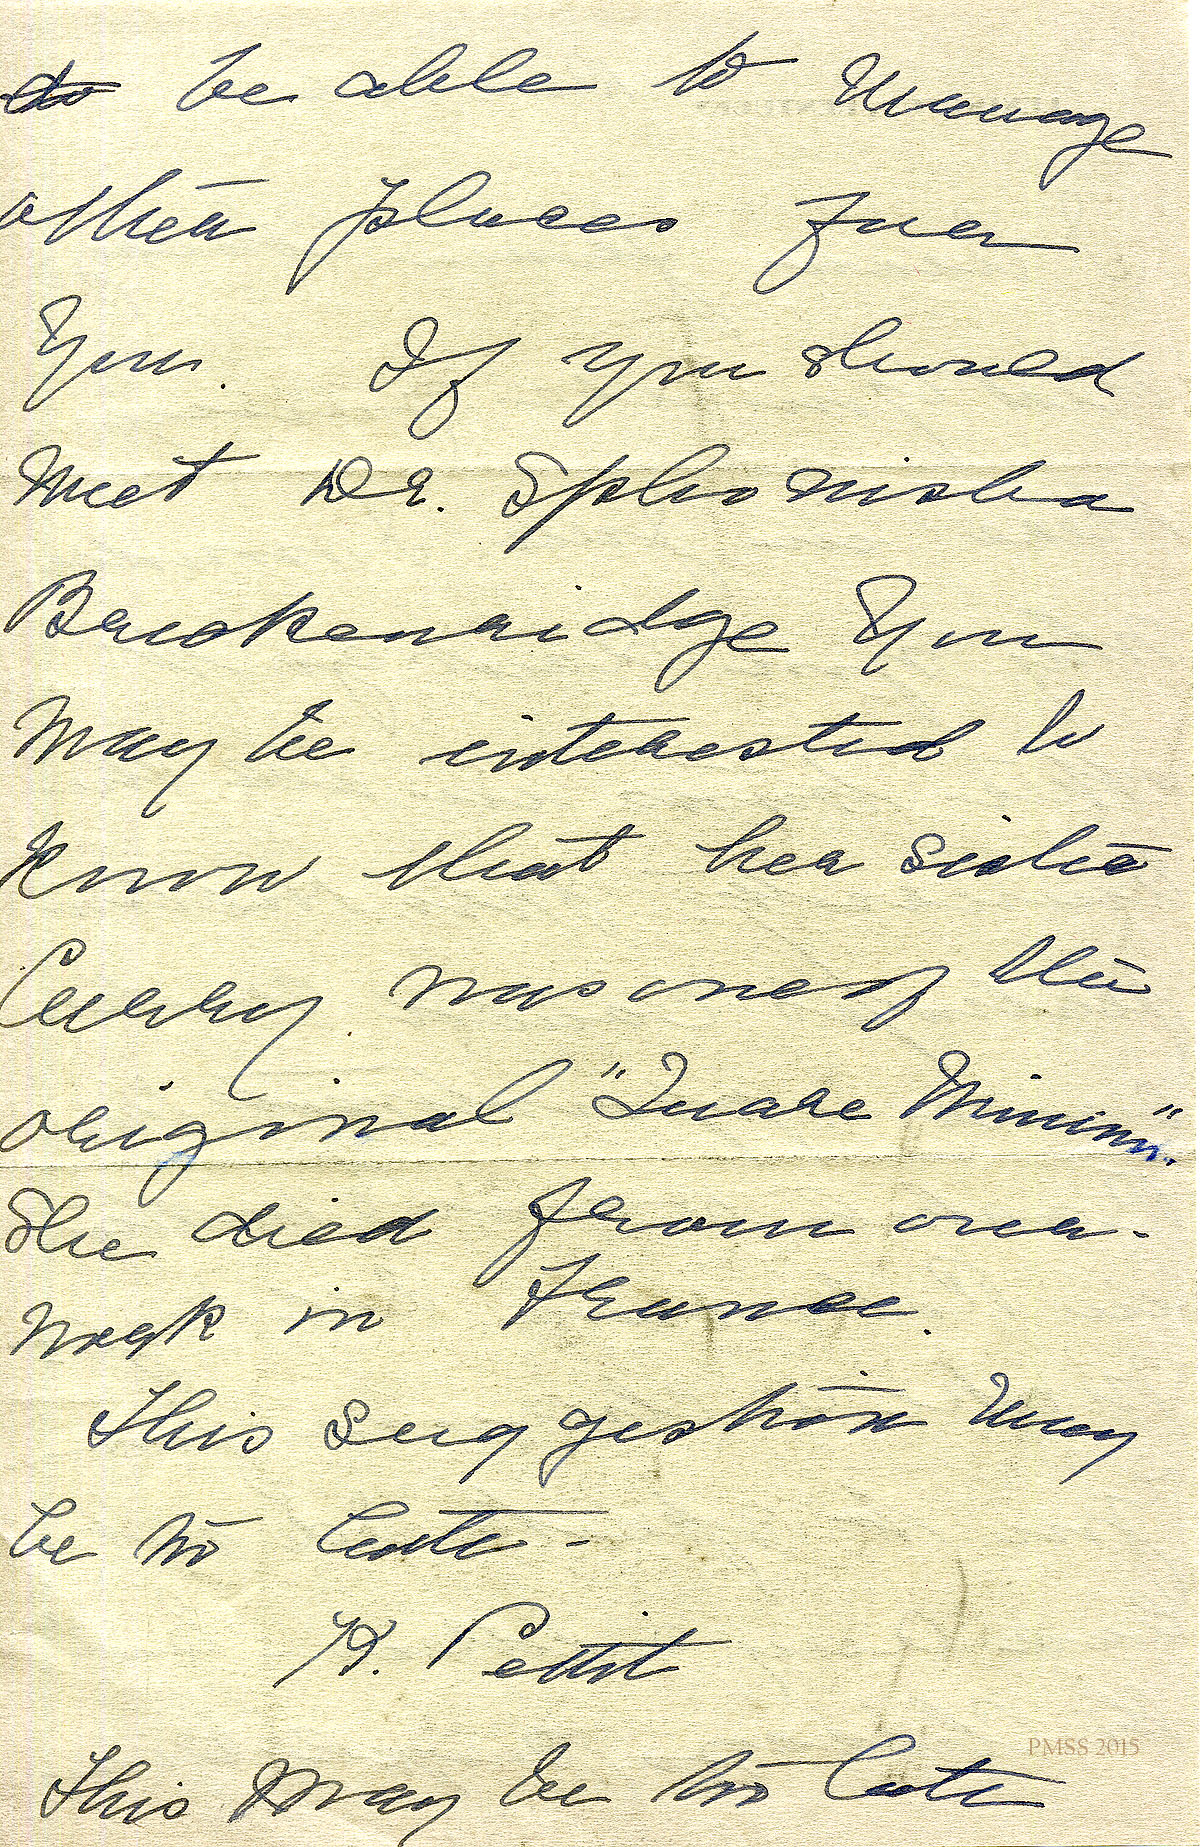 to be able to manage
other places for
you. If you should
meet Dr. Sphonisba
Breckenridge you
may be interested to
know that her sister
Curry was one of the
original "Quare Wimin".
She died from over-
work in France.
This suggestion may
be to late -
K. Pettit
PMSS 2015
This may be to late